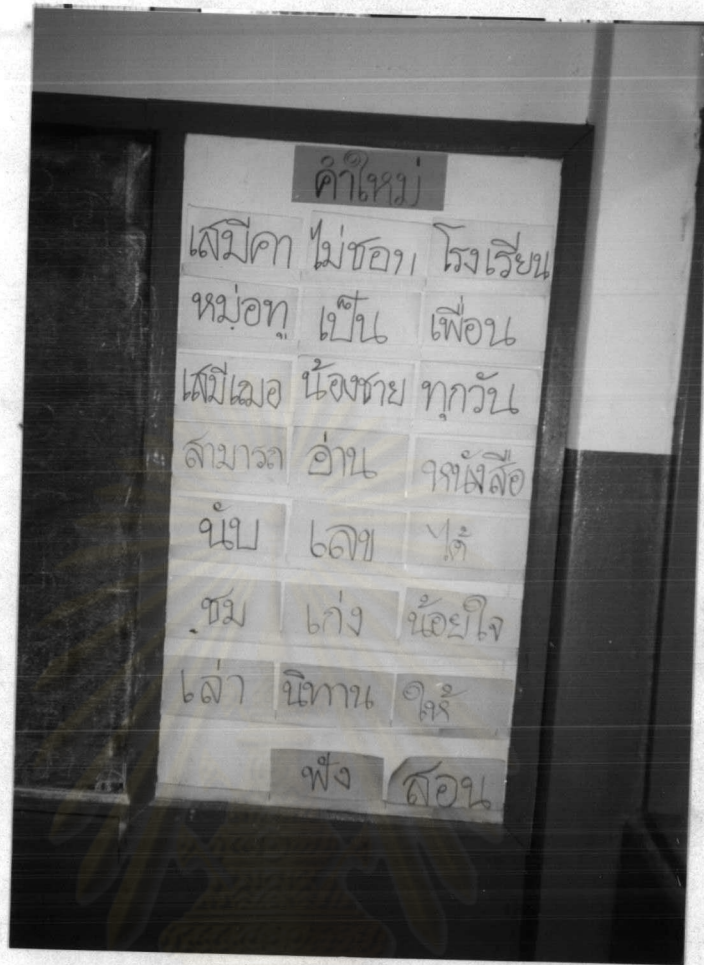 คำใหม่
เสมีคา ไม่ชอบ โรงเรียน
หม่อทู เป็น เพื่อน
เสมีเมอ น้องชาย ทุกวัน
สามารถ อ่าน หนังสือ
นับ เลข ได้
ชม เก่ง น้อยใจ
เล่า นิทาน ให้
ฟัง สอน